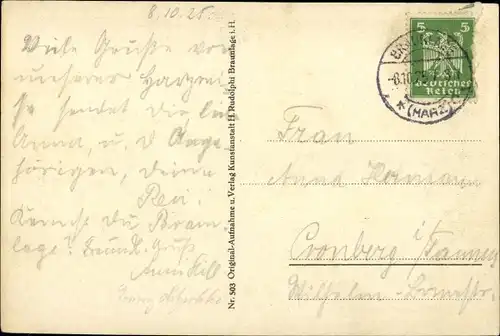 8.10.25.
Viele Grüße von
unserer Harzrei
se sendet Dir lie
Anna, u. d Ange
hörigen, Deine
Resi.
Kennst Du Braun
lage? Freundl. Gruß
Nr. 503 Original-Aufnahme u. Verlag Kunstanstalt H. Rudolphi Braunlage i. H.
5 5
Deutsches
Reich
(HARZ)
Frau
Anna Hermann
Cronberg i/Taunus
Wilhelm-